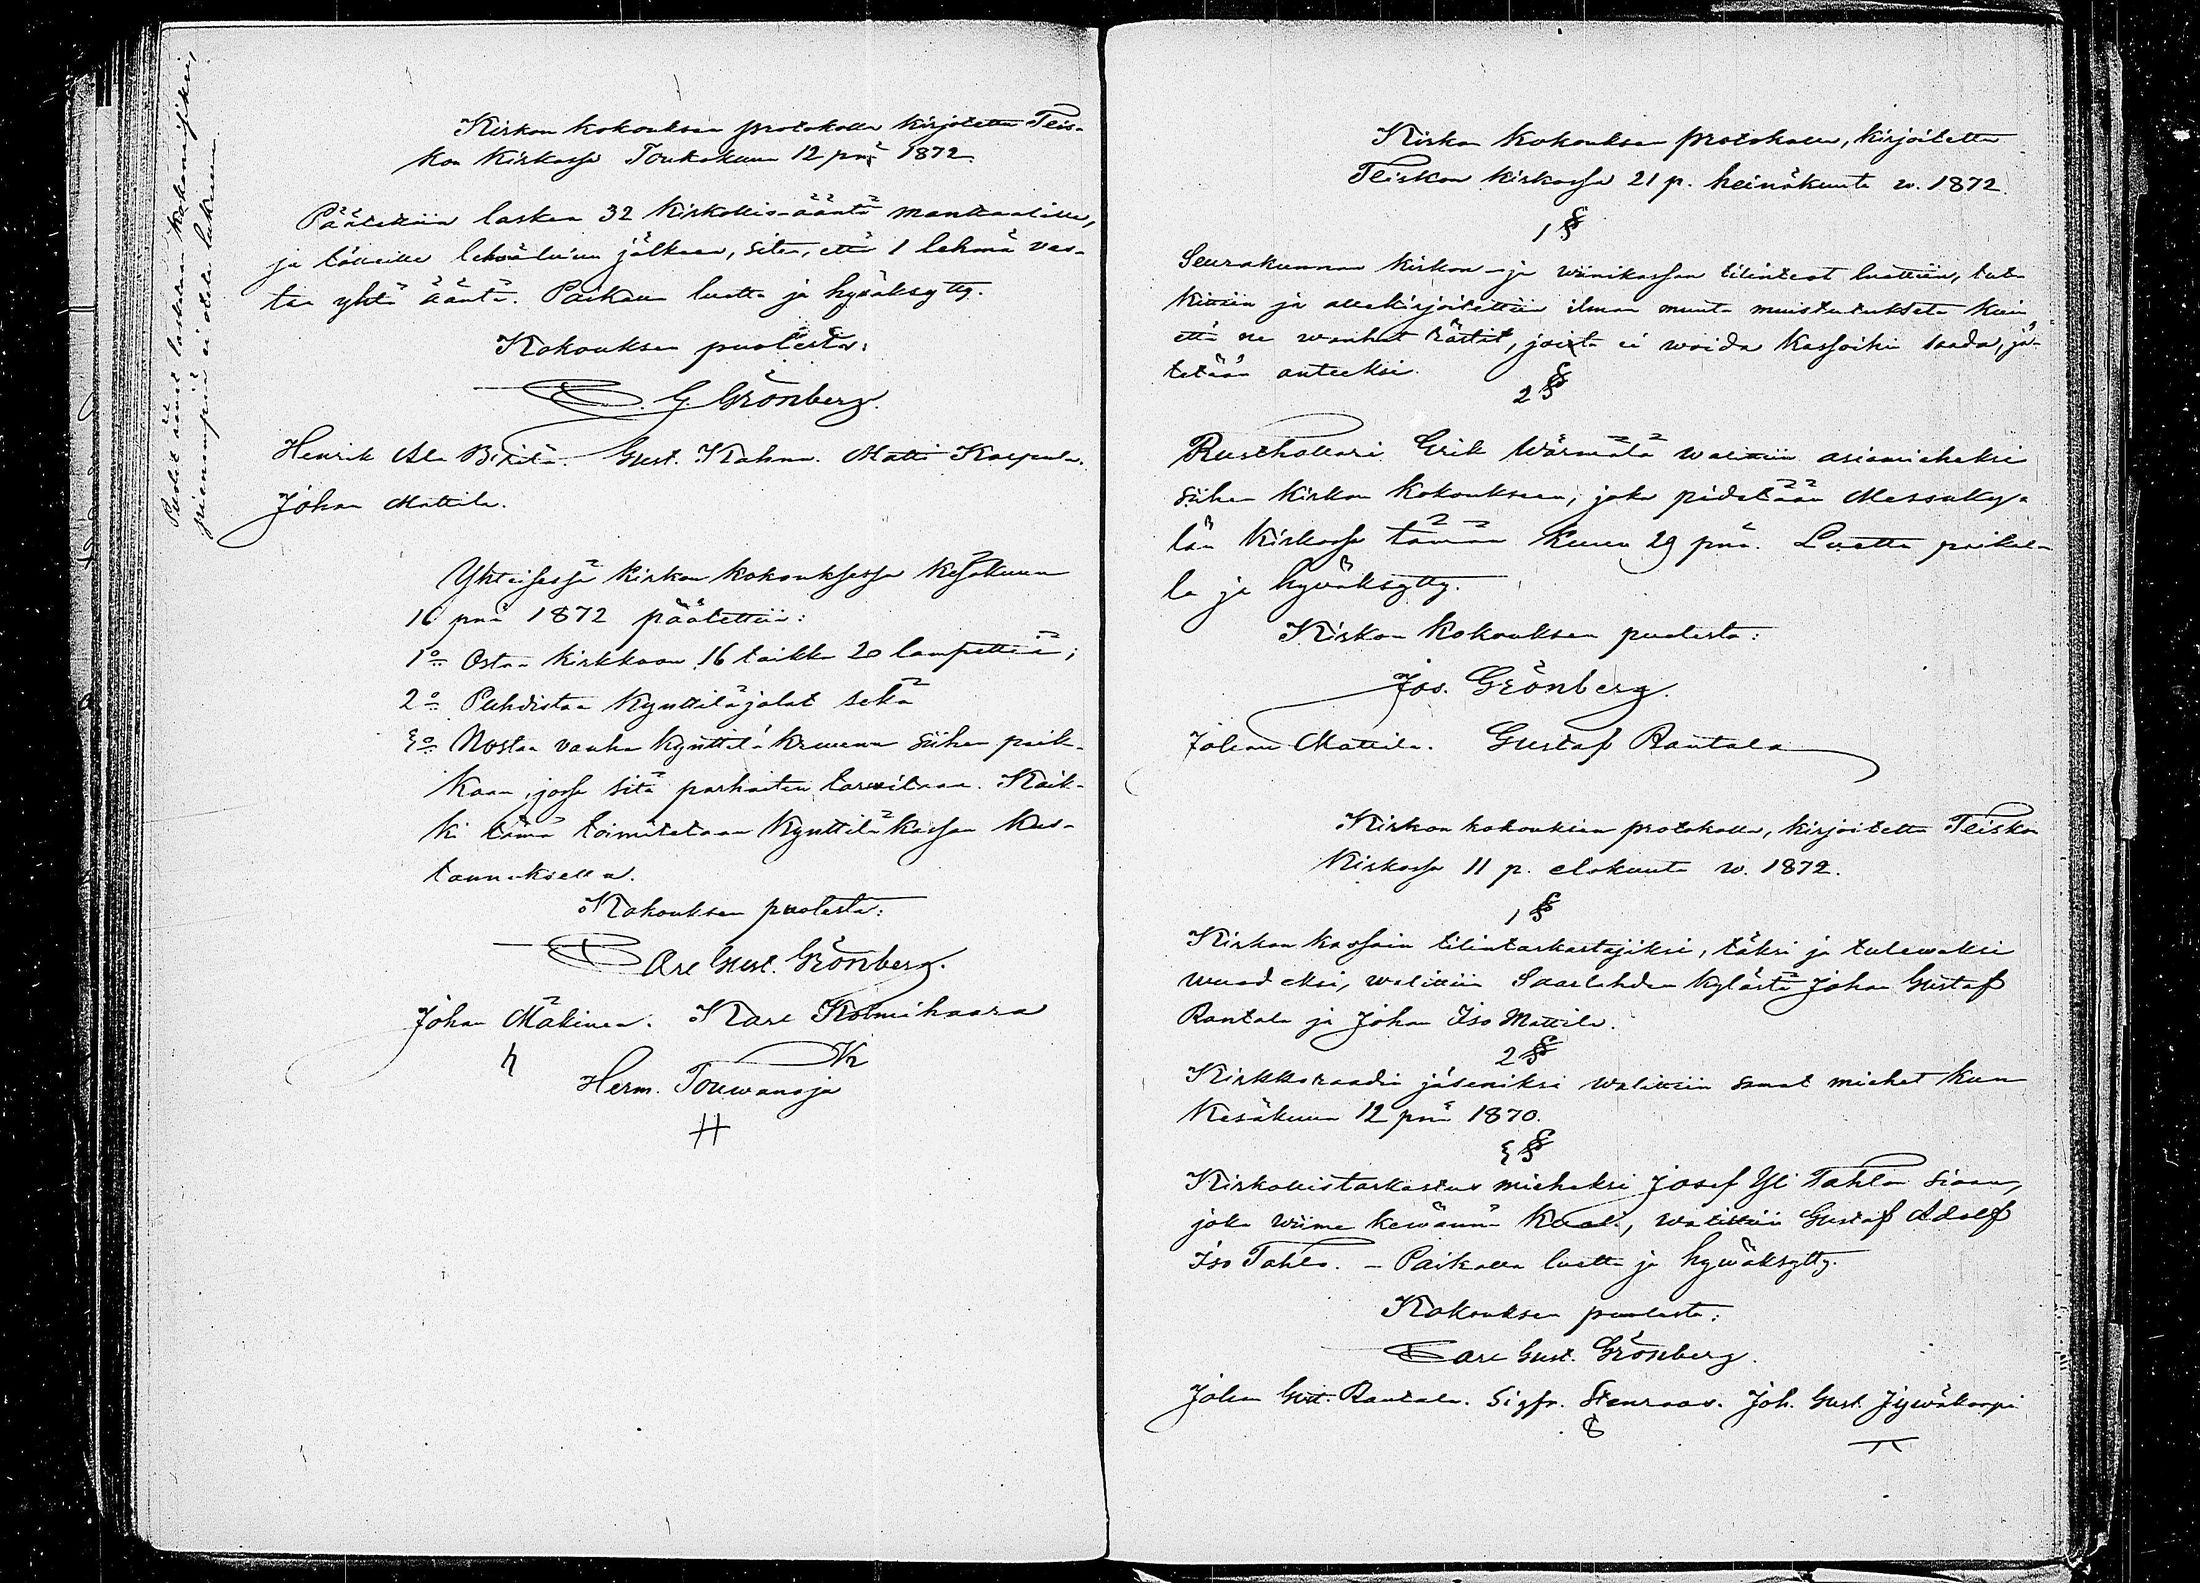 Puolet äänet lasketaan kokonaisiksi,
pienempiä ei oteta lukuun.
Kirkon kokouksen protokolla kirjotettu Teis-
kon Kirkossa Toukokuun 12 pnä 1872.
Päätettiin laskea 32 Kirkollis-ääntä manttaalille,
ja tölleille lehmäluvun jälkeen, siten, että 1 lehmä vas-
taa yhtä ääntä. Paikalla luettu ja hyväksytty.
Kokouksen puolesta:
C. G. Grönberg.
Henrik Ala Pirilä. Gust. Kahna. Matti Korpula.
Johan Mattila.
Yhteisessä kirkon kokouksessa Kesäkuun
16 pnä 1872 päätettiin:
1o Ostaa Kirkkoon 16 taikka 20 lampettiä;
2o Puhdistaa Kynttiläjalat sekä
3o Nostaa vanha Kynttilä Kruunu siihen paik-
kaan, jossa sitä parhaiten tarvitaan. Kaik-
ki tämä toimitetaan Kynttiläkassan kus-
tannuksella.
Kokouksen puolesta:
Carl Gust. Grönberg.
Johan Mäkinen. Karl Kolmihaara
Herm. Touwanoja
Kirkon Kokouksen protokolla, kirjoitettu
Teiskon kirkossa 21 p. heinäkuuta w. 1872.
1 §
Seurakunnan kirkon- ja wiinikassan tilinteot luettiin, tut-
kittiin ja allekirjoitettiin ilman muuta muistutuksetta kuin
että ne wanhat rästit, joita ei woida kassoihin saada, jä-
tetään anteeksi.
2 §
Rusthollari Erik Wärmälä walittiin asiamieheksi
siihen Kirkon Kokoukseen, joka pidetään Messuky-
län Kirkossa tämän kuun 29 pnä. Luettu paikal-
la ja hyväksytty.
Kirkon Kokouksen puolesta:
Jos. Grönberg.
Johan Mattila. Gustaf Rantala
Kirkon kokouksen protokolla, kirjoitettu Teiskon
Kirkossa 11 p. elokuuta w. 1872.
1 §
Kirkon kassain tilintarkastajiksi, täksi ja tulewaksi
wuodeksi, walittiin Saarlahden kylästä Johan Gustaf
Rantala ja Johan Iso Mattila.
2 §
Kirkkoraadin jäseniksi walittiin samat miehet kun
Kesäkuun 12 pnä 1870.
3 §
Kirkollistarkastus mieheksi Josef Yli Tahlon siaan,
joka wiime kewäänä kuoli, walittiin Gustaf Adolf
Iso Tahlo. – Paikalla luettu ja hywäksytty.
Kokouksen puolesta:
Carl Gust. Grönberg.
Johan Gust. Rantala. Sigfr. Stenroos. Joh. Gust. Jywäkorpi